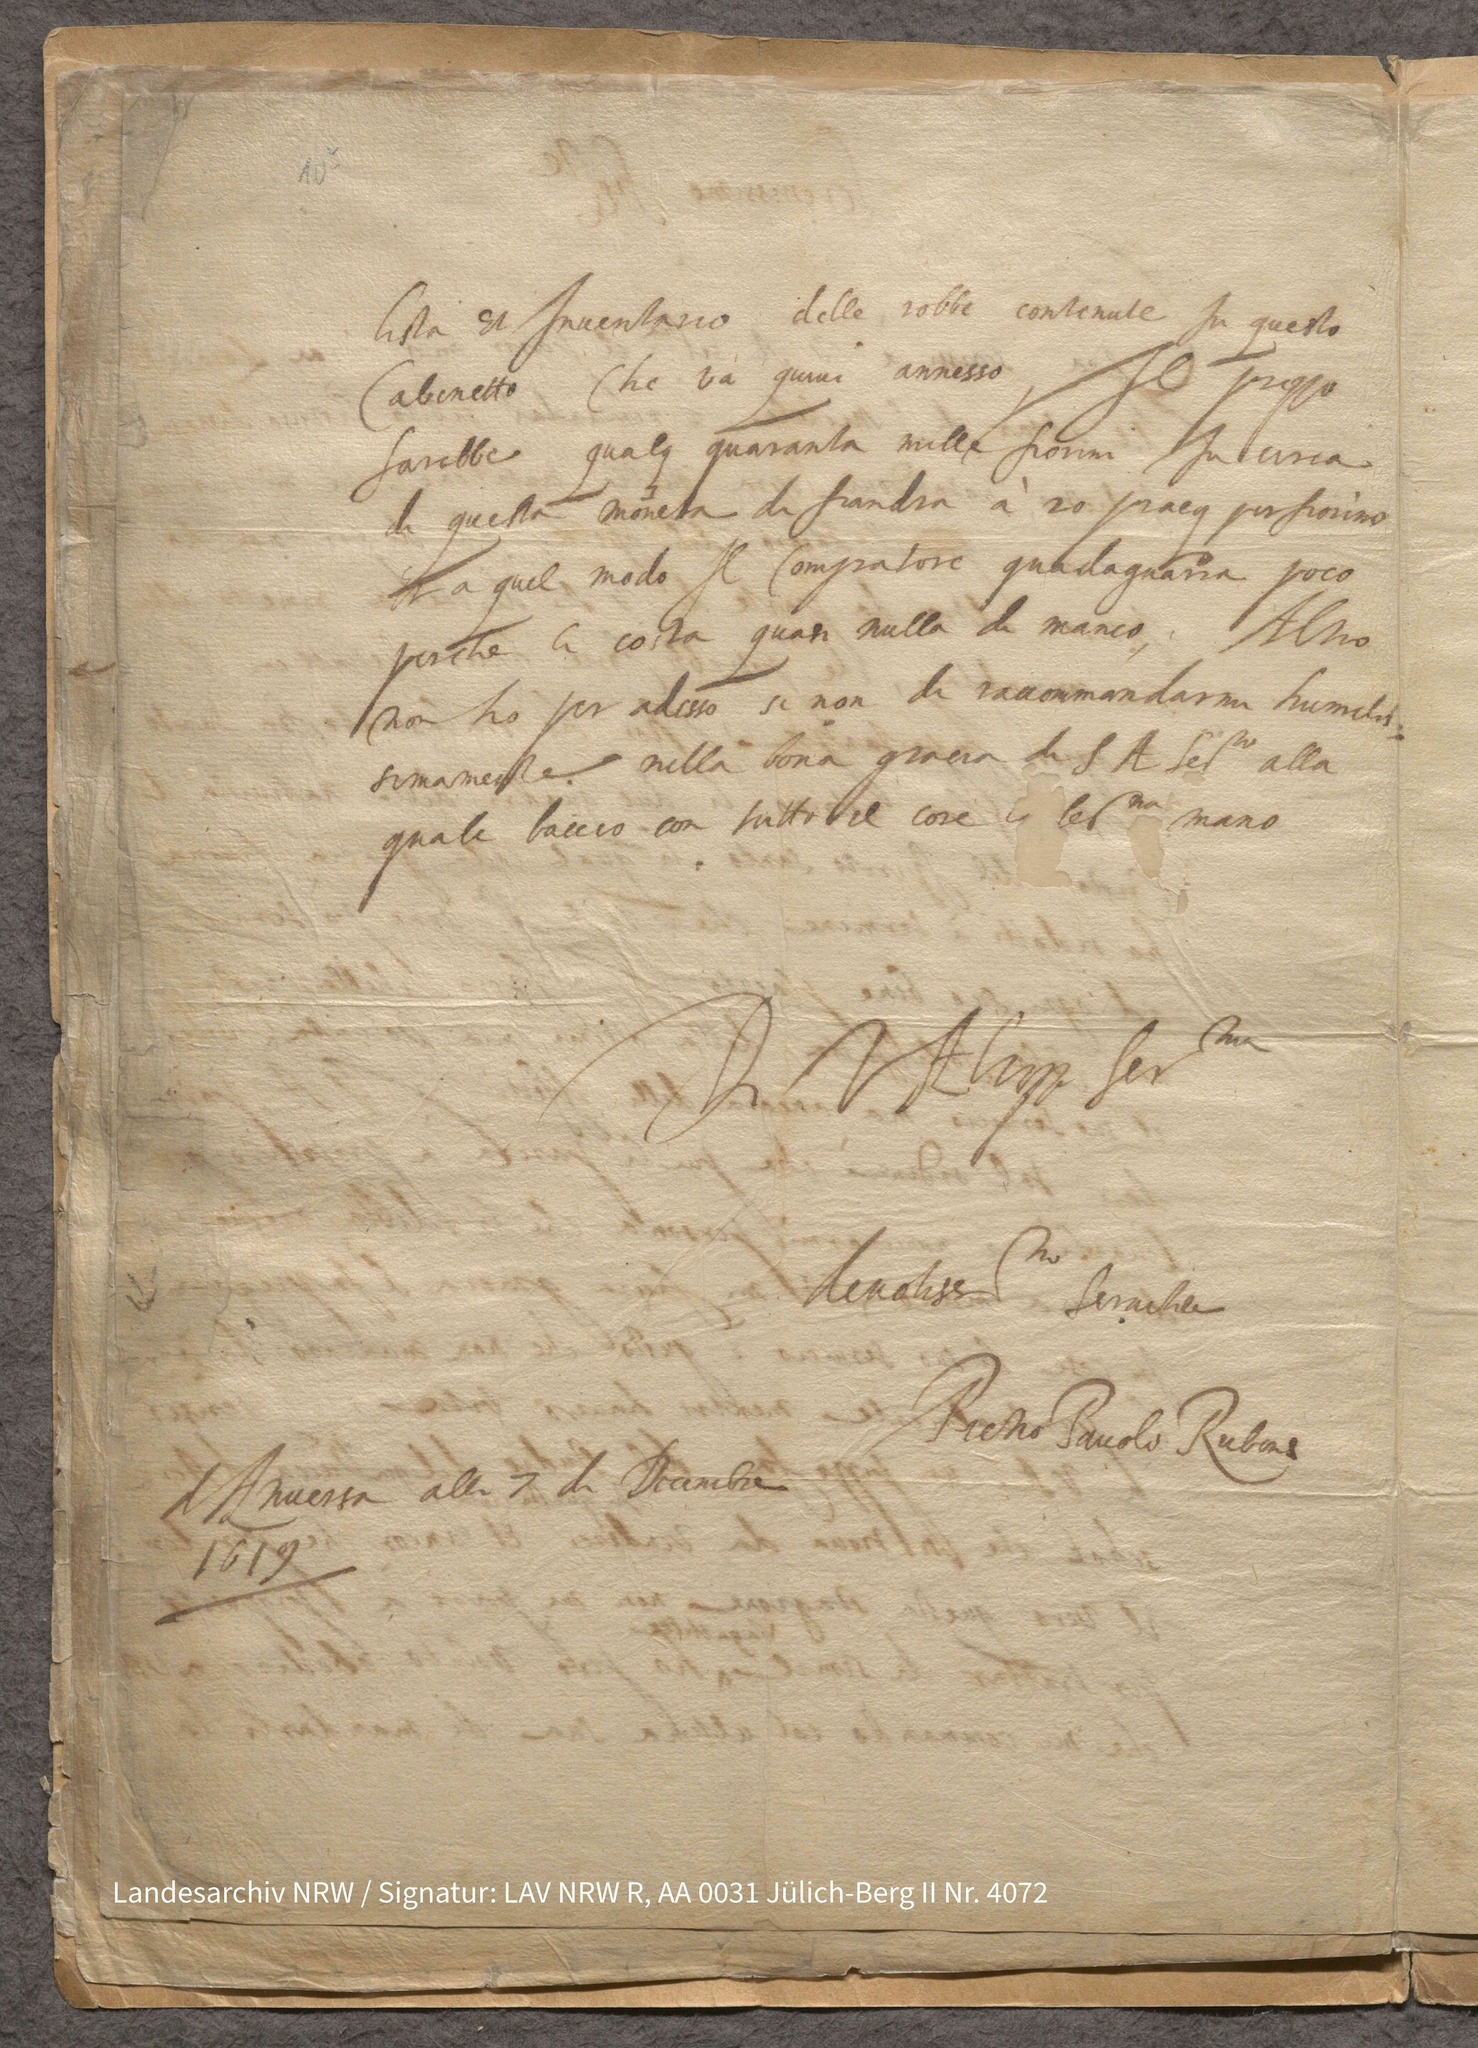 10v
lista et Inventario delle robbe contenute In questo
Cabinetto Che và quivi annesso, Il prezzo
sarebbe qualq quaranta mille fiorini In circa
di questa moneta di fiandra à 20 placq per fiorino
et a quel modo Il Compratore guadagnaria poco
perche li costa quasi nulla di manco, Altro
non ho per adesso se non di raccommandarmi humilis:
simamente nella bona gracia di S A Ser.mo alla
quale baccio con tutto il core la Ser.ma mano
Di V Alt Ser.ma
devotiss.mo Servitor
Pietro Pauolo Rubens
d'Anversa alli 7 di Decembre
1619
Landesarchiv NRW / Signatur: LAV NRW R, AA 0031 Jülich-Berg II Nr. 4072